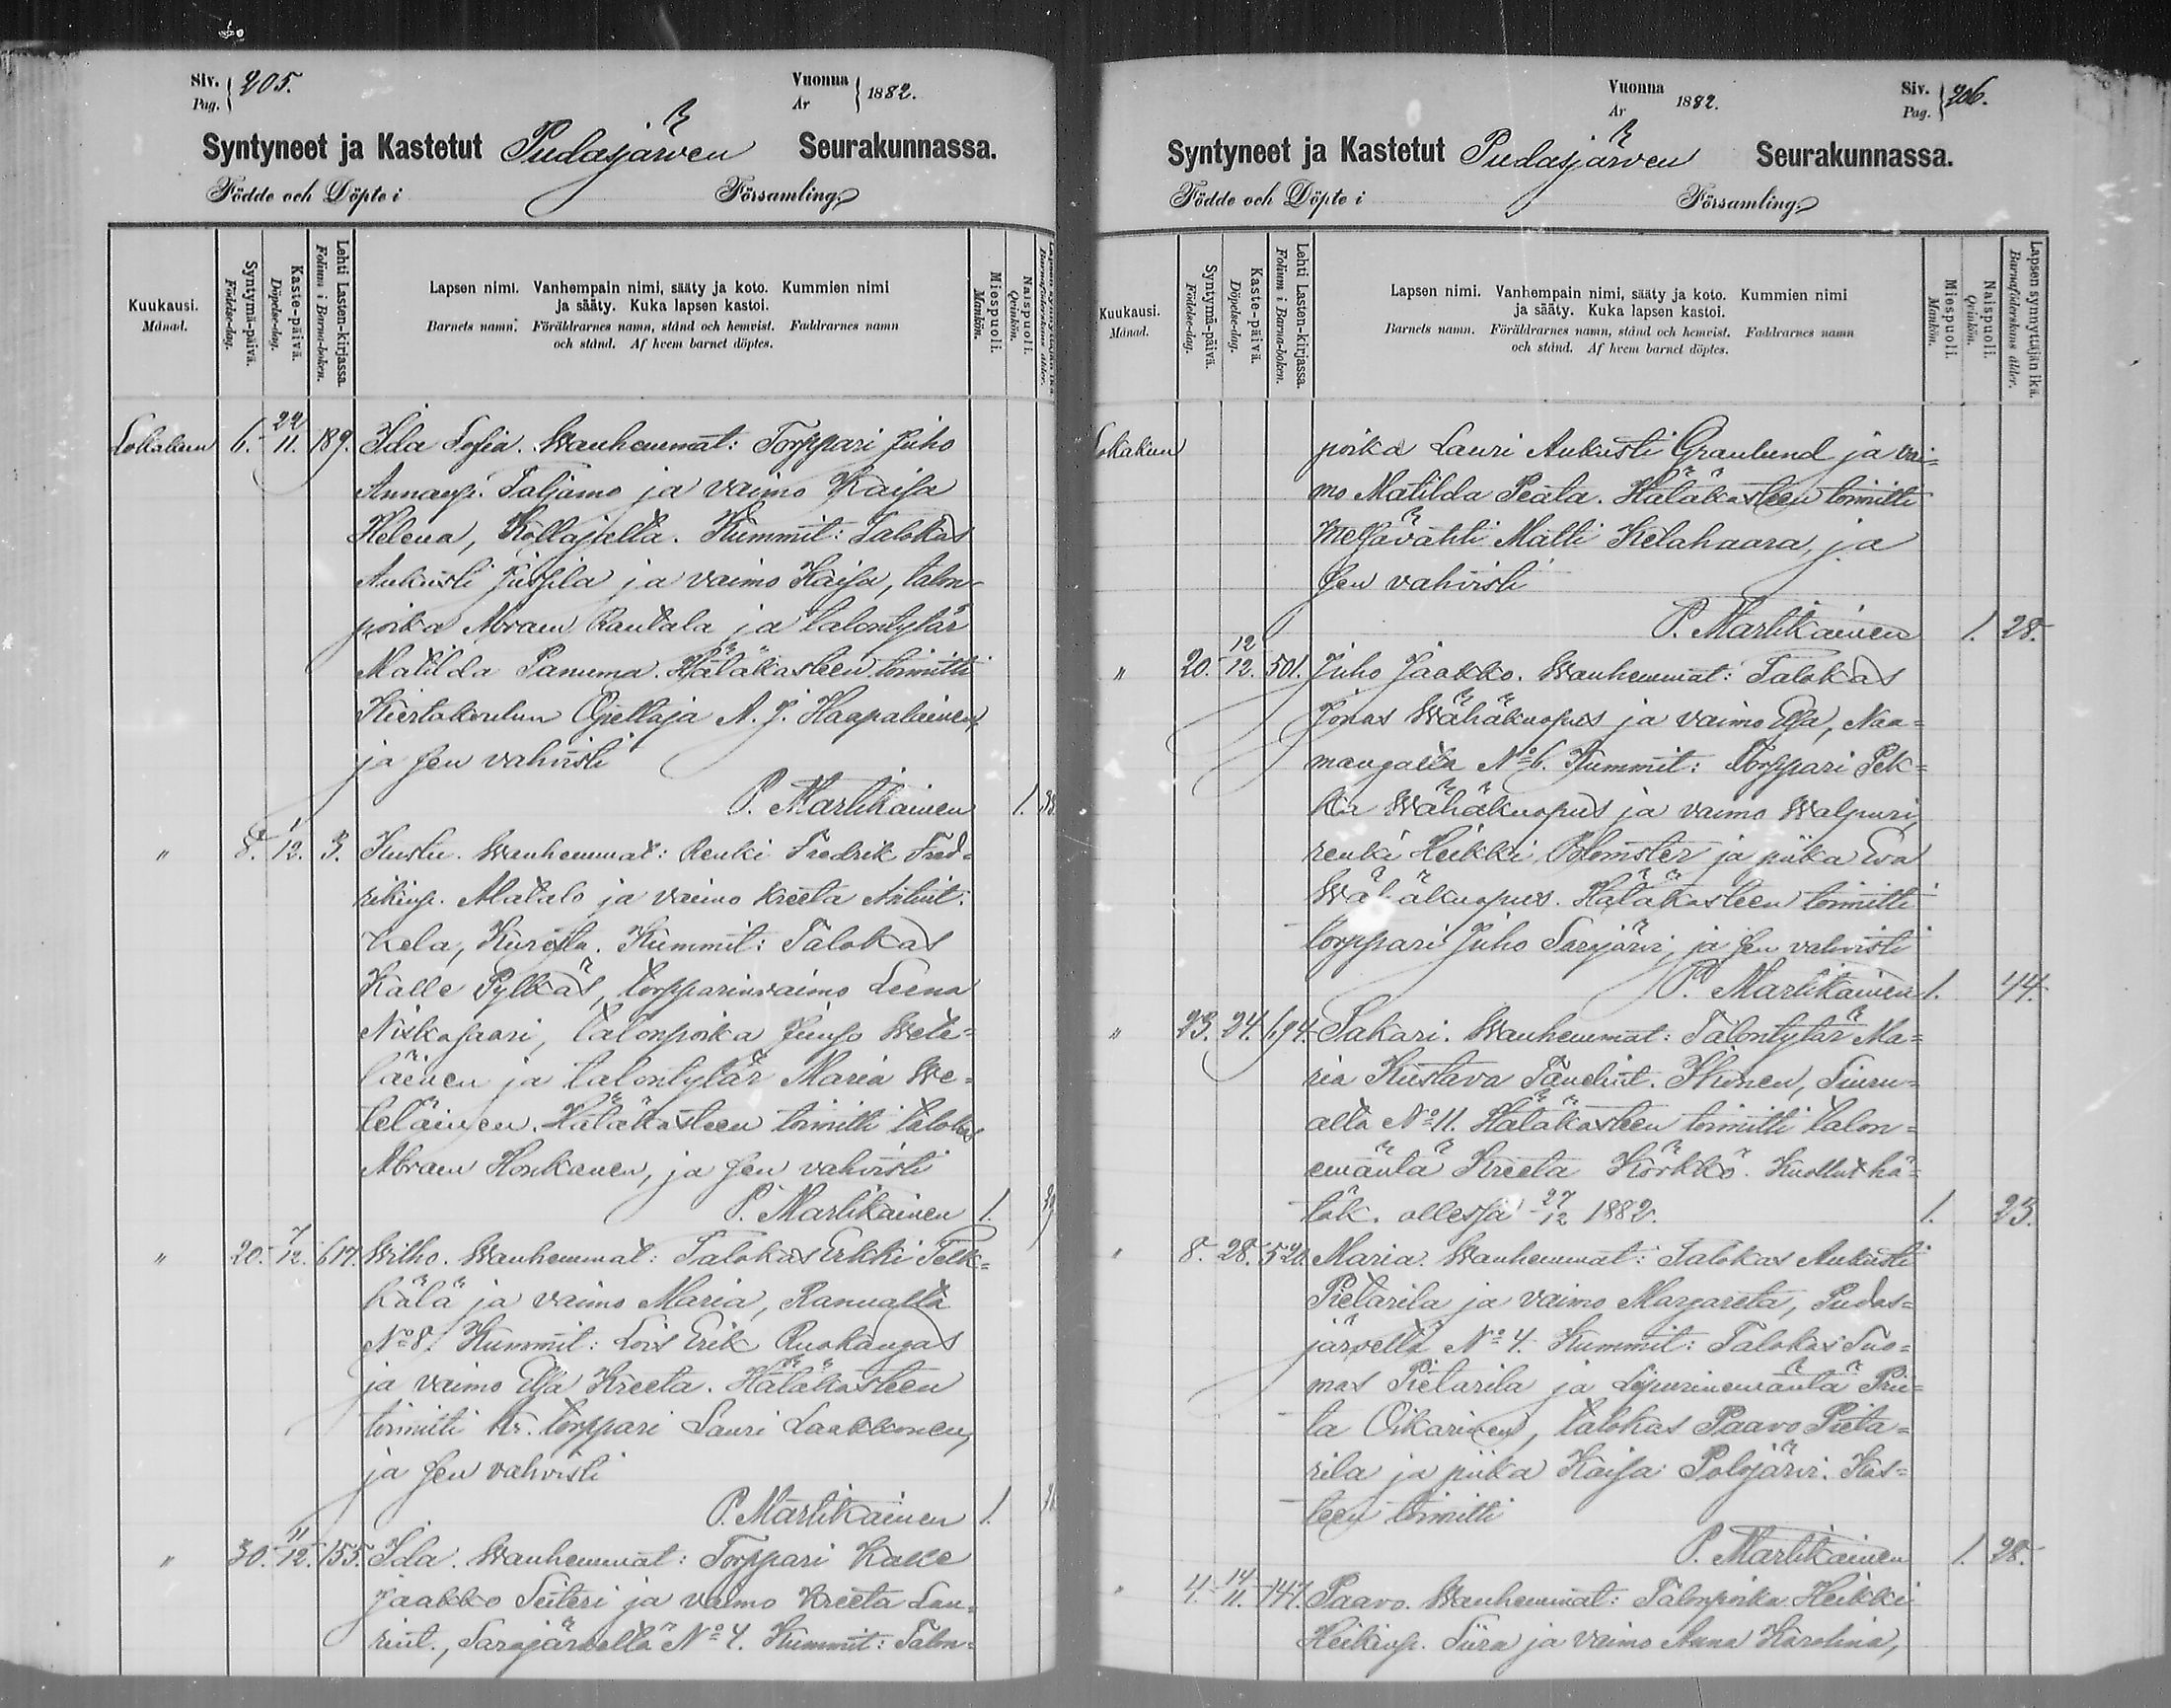 Siv. Pag. 205.
Vuonna År 1882.
Syntyneet ja Kastetut Pudasjärven Seurakunnassa.
Födde och Döpte i Församling.
Kuukausi. Månad.
Syntymä-päivä. Födelse-dag.
Kaste-päivä. Döpelse-dag.
Lehti Lasten-kirjassa. Folium i Barna-boken.
Lapsen nimi. Vanhempain nimi, sääty ja koto. Kummien nimi
ja sääty. Kuka lapsen kastoi.
Barnets namn. Föräldrarnes namn, stånd och hemvist. Faddrarnes namn
och stånd. Af hvem barnet döptes.
Miespuoli. Mankön.
Naispuoli. Qvinkön.
Lapsen synnyttäjän ikä. Barnaföderskans ålder.
Lokakuu 6. 22/11. 189. Ida Sofia. Wanhemmat: Torppari Juho
Annanp. Taljamo ja vaimo Kaisa
Helena, Kollajelta. Kummit: Talokas
Aukusti Juspla ja vaimo Kaisa, talon-
poika Abram Rantala ja talontytär
Matilda Panuma. Hätäkasteen toimitti
Kiertokoulun Opettaja A. J. Haapalainen,
ja sen vahvisti
P. Martikainen 1.
" 8. 1/12. 3. Kustu. Wanhemmat: Renki Fredrik Fred-
rikinp. Matalo ja vaimo Kreeta Antint.
Kela, Kurelta. Kummit: Talokas
Kalle Pylkäs, torpparinvaimo Leena
Niskasaari, talonpoika Juuso Wete-
läinen ja talontytär Maria We-
teläinen. Hätäkasteen toimitti talokas
Abram Honkanen, ja sen vahvisti
P. Martikainen 1.
" 20. 7/12. 617. Wilho. Wanhemmat: Talokas Erkki Pelk-
kälä ja vaimo Maria, Ranualta
No 8. Kummit: Lois Erik Ruokangas
ja vaimo Elsa Kreeta. Hätäkasteen
toimitti Kr. torppari Lauri Laakkonen,
ja sen vahvisti
P. Martikainen 1.
" 30. 11/12. 155. Ida. Wanhemmat: Torppari Kalle
Jaakko Seiteri ja vaimo Kreeta Lau-
rint., Sarajärvellä No 4. Kummit: Talon-
Vuonna År 1882.
Siv. Pag. 206.
Syntyneet ja Kastetut Pudasjärven Seurakunnassa.
Födde och Döpte i Församling.
Kuukausi. Månad.
Syntymä-päivä. Födelse-dag.
Kaste-päivä. Döpelse-dag.
Lehti Lasten-kirjassa. Folium i Barna-boken.
Lapsen nimi. Vanhempain nimi, sääty ja koto. Kummien nimi
ja sääty. Kuka lapsen kastoi.
Barnets namn. Föräldrarnes namn, stånd och hemvist. Faddrarnes namn
och stånd. Af hvem barnet döptes.
Miespuoli. Mankön.
Naispuoli. Qvinkön.
Lapsen synnyttäjän ikä. Barnaföderskans ålder.
Lokakuu poika Lauri Aukusti Granlund ja vai-
mo Matilda Peata. Hätäkasteen toimitti
Metsävahti Matti Kelahaara, ja
sen vahvisti
P. Martikainen 1. 28.
" 20. 12/12. 501. Juho Jaakko. Wanhemmat: Talokas
Jonas Wähäkuopus ja vaimo Elsa, Naa-
mangalta No 6. Kummit: Torppari Pek-
ka Wähäkuopus ja vaimo Walpuri,
renki Heikki Blomster ja piika Eva
Wähäkuopus. Hätäkasteen toimitti
torppari Juho Sarjärvi, ja sen vahvisti
P. Martikainen 1. 44.
" 23. 24. 694. Sakari. Wanhemmat: Talontytär Ma-
ria Kustava Tanelint. Ikonen, Siuru-
alta No 11. Hätäkasteen toimitti talon-
emäntä Kreeta Körkkö. Kuollut hä-
täk. ollessa 27/12 1882. 1. 23.
" 8. 28. 520. Maria. Wanhemmat: Talokas Aukusti
Pietarila ja vaimo Margareta, Pudas-
järvellä No 4. Kummit: Talokas Tuo-
mas Pietarila ja Lipurinemäntä Prii-
ta Oikarinen, talokas Paavo Pieta-
rila ja piika Kaisa Polojärvi. Kas-
teen toimitti
P. Martikainen 1. 28.
" 4. 14/11. 147. Paavo. Wanhemmat: Talonpoika Heikki
Heikinp. Siira ja vaimo Anna Karolina,